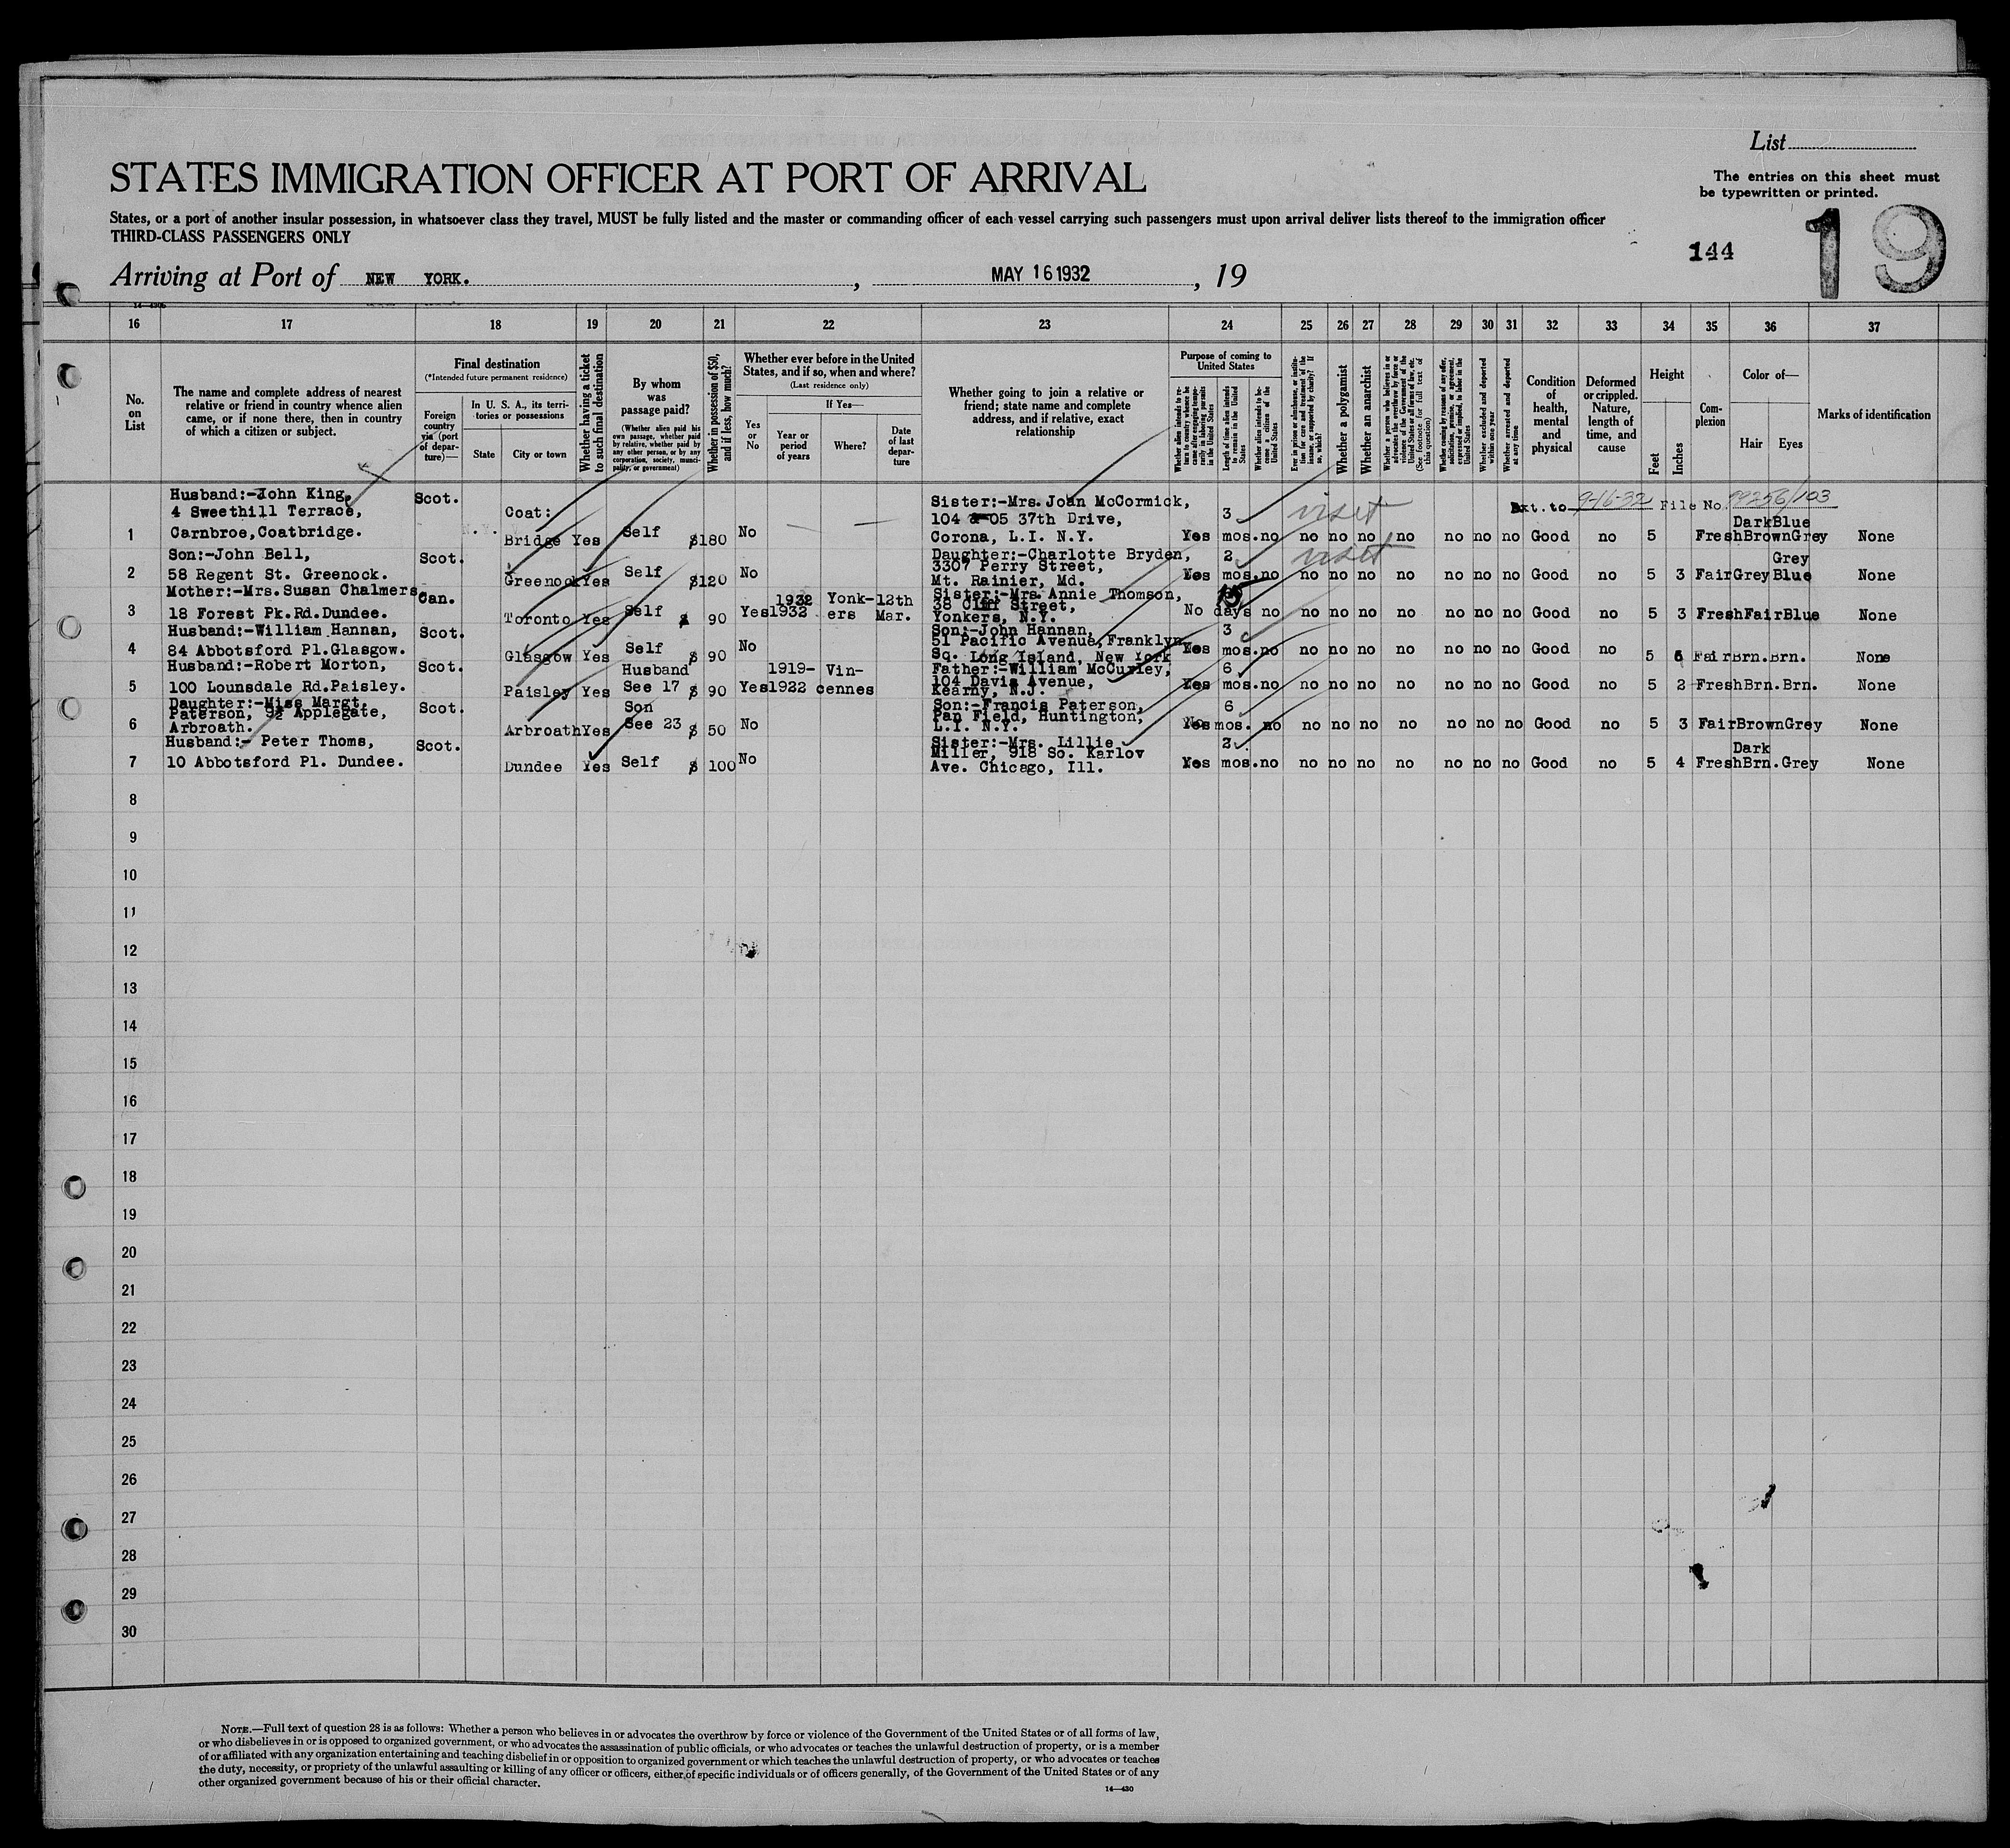 List
STATES IMMIGRATION OFFICER AT PORT OF ARRIVAL
The entries on this sheet must
be typewritten or printed.
States, or a port of another insular possession, in whatsoever class they travel, MUST be fully listed and the master or commanding officer of each vessel carrying such passengers must upon arrival deliver lists thereof to the immigration officer
THIRD-CLASS PASSENGERS ONLY
144 19
Arriving at Port of NEW YORK. , MAY 16 1932 , 19
16 17 18 19 20 21 22 23 24 25 26 27 28 29 30 31 32 33 34 35 36 37
No. on List
The name and complete address of nearest relative or friend in country whence alien came, or if none there, then in country of which a citizen or subject.
Final destination
(*Intended future permanent residence)
Foreign country via (port of departure)—
In U. S. A., its territories or possessions
State
City or town
Whether having a ticket to such final destination
By whom was passage paid?
(Whether alien paid his own passage, whether paid by relative, whether paid by any other person, or by any corporation, society, municipality, or government)
Whether in possession of $50, and if less, how much?
Whether ever before in the United States, and if so, when and where?
(Last residence only)
Yes or No
If Yes—
Year or period of years
Where?
Date of last departure
Whether going to join a relative or friend; state name and complete address, and if relative, exact relationship
Purpose of coming to United States
Whether alien intends to return to country whence he came after engaging temporarily in laboring pursuits in the United States
Length of time alien intends to remain in the United States
Whether alien intends to become a citizen of the United States
Ever in prison or almshouse, or institution for care and treatment of the insane, or supported by charity? If so, which?
Whether a polygamist
Whether an anarchist
(See footnote for full text of this question)
Whether coming by reason of any offer, solicitation, promise, or agreement, expressed or implied, to labor in the United States
Whether excluded and deported within one year
Whether arrested and deported at any time
Condition of health, mental and physical
Deformed or crippled. Nature, length of time, and cause
Height
Feet Inches
Complexion
Color of—
Hair Eyes
Marks of identification
Husband:-John King,
4 Sweethill Terrace,
Carnbroe,Coatbridge.
1 Scot. Coat: Bridge Yes Self $180 No
Sister:-Mrs. Joan McCormick,
104 05 37th Drive,
Corona, L.I. N.Y.
Yes 3 mos. no visit no no no no no no no Good no 5 Fresh Dark Brown Blue Grey None
Ext. to 9-16-32 File No. 99256/103
Son:-John Bell,
58 Regent St. Greenock.
2 Scot. Greenock Yes Self $120 No
Daughter:-Charlotte Bryden,
3307 Perry Street,
Mt. Rainier, Md.
Yes 2 mos. no visit no no no no no no no Good no 5 3 Fair Grey Grey Blue None
Mother:-Mrs.Susan Chalmers
18 Forest Pk.Rd.Dundee.
3 Can. Toronto Yes Self $ 90 Yes 1932 1932 Yonkers 12th Mar.
Sister:-Mrs. Annie Thomson,
38 Cliff Street,
Yonkers, N.Y.
No 15 days no no no no no no no no Good no 5 3 Fresh Fair Blue None
Husband:-William Hannan,
84 Abbotsford Pl.Glasgow.
4 Scot. Glasgow Yes Self $ 90 No
Son:-John Hannan,
51 Pacific Avenue, Franklyn
Sq. Long Island, New York
Yes 3 mos. no no no no no no no no Good no 5 6 Fair Brn. Brn. None
Husband:-Robert Morton,
100 Lounsdale Rd.Paisley.
5 Scot. Paisley Yes Husband See 17 $ 90 Yes 1919-1922 Vincennes
Father:-William McCurley,
104 Davis Avenue,
Kearny, N.J.
Yes 6 mos. no no no no no no no no Good no 5 2 Fresh Brn. Brn. None
Daughter:-Miss Margt.
Paterson, 9½ Applegate,
Arbroath.
6 Scot. Arbroath Yes Son See 23 $ 50 No
Son:-Francis Paterson,
Pan Field, Huntington,
L.I. N.Y.
Yes 6 mos. no no no no no no no no Good no 5 3 Fair Brown Grey None
Husband:- Peter Thoms,
10 Abbotsford Pl. Dundee.
7 Scot. Dundee Yes Self $ 100 No
Sister:-Mrs. Lillie
Miller, 918 So. Karlov
Ave. Chicago, Ill.
Yes 2 mos. no no no no no no no no Good no 5 4 Fresh Dark Brn. Grey None
8
9
10
11
12
13
14
15
16
17
18
19
20
21
22
23
24
25
26
27
28
29
30
NOTE.—Full text of question 28 is as follows: Whether a person who believes in or advocates the overthrow by force or violence of the Government of the United States or of all forms of law,
or who disbelieves in or is opposed to organized government, or who advocates the assassination of public officials, or who advocates or teaches the unlawful destruction of property, or is a member
of or affiliated with any organization entertaining and teaching disbelief in or opposition to organized government or which teaches the unlawful destruction of property, or who advocates or teaches
the duty, necessity, or propriety of the unlawful assaulting or killing of any officer or officers, either of specific individuals or of officers generally, of the Government of the United States or of any
other organized government because of his or their official character.
14—430